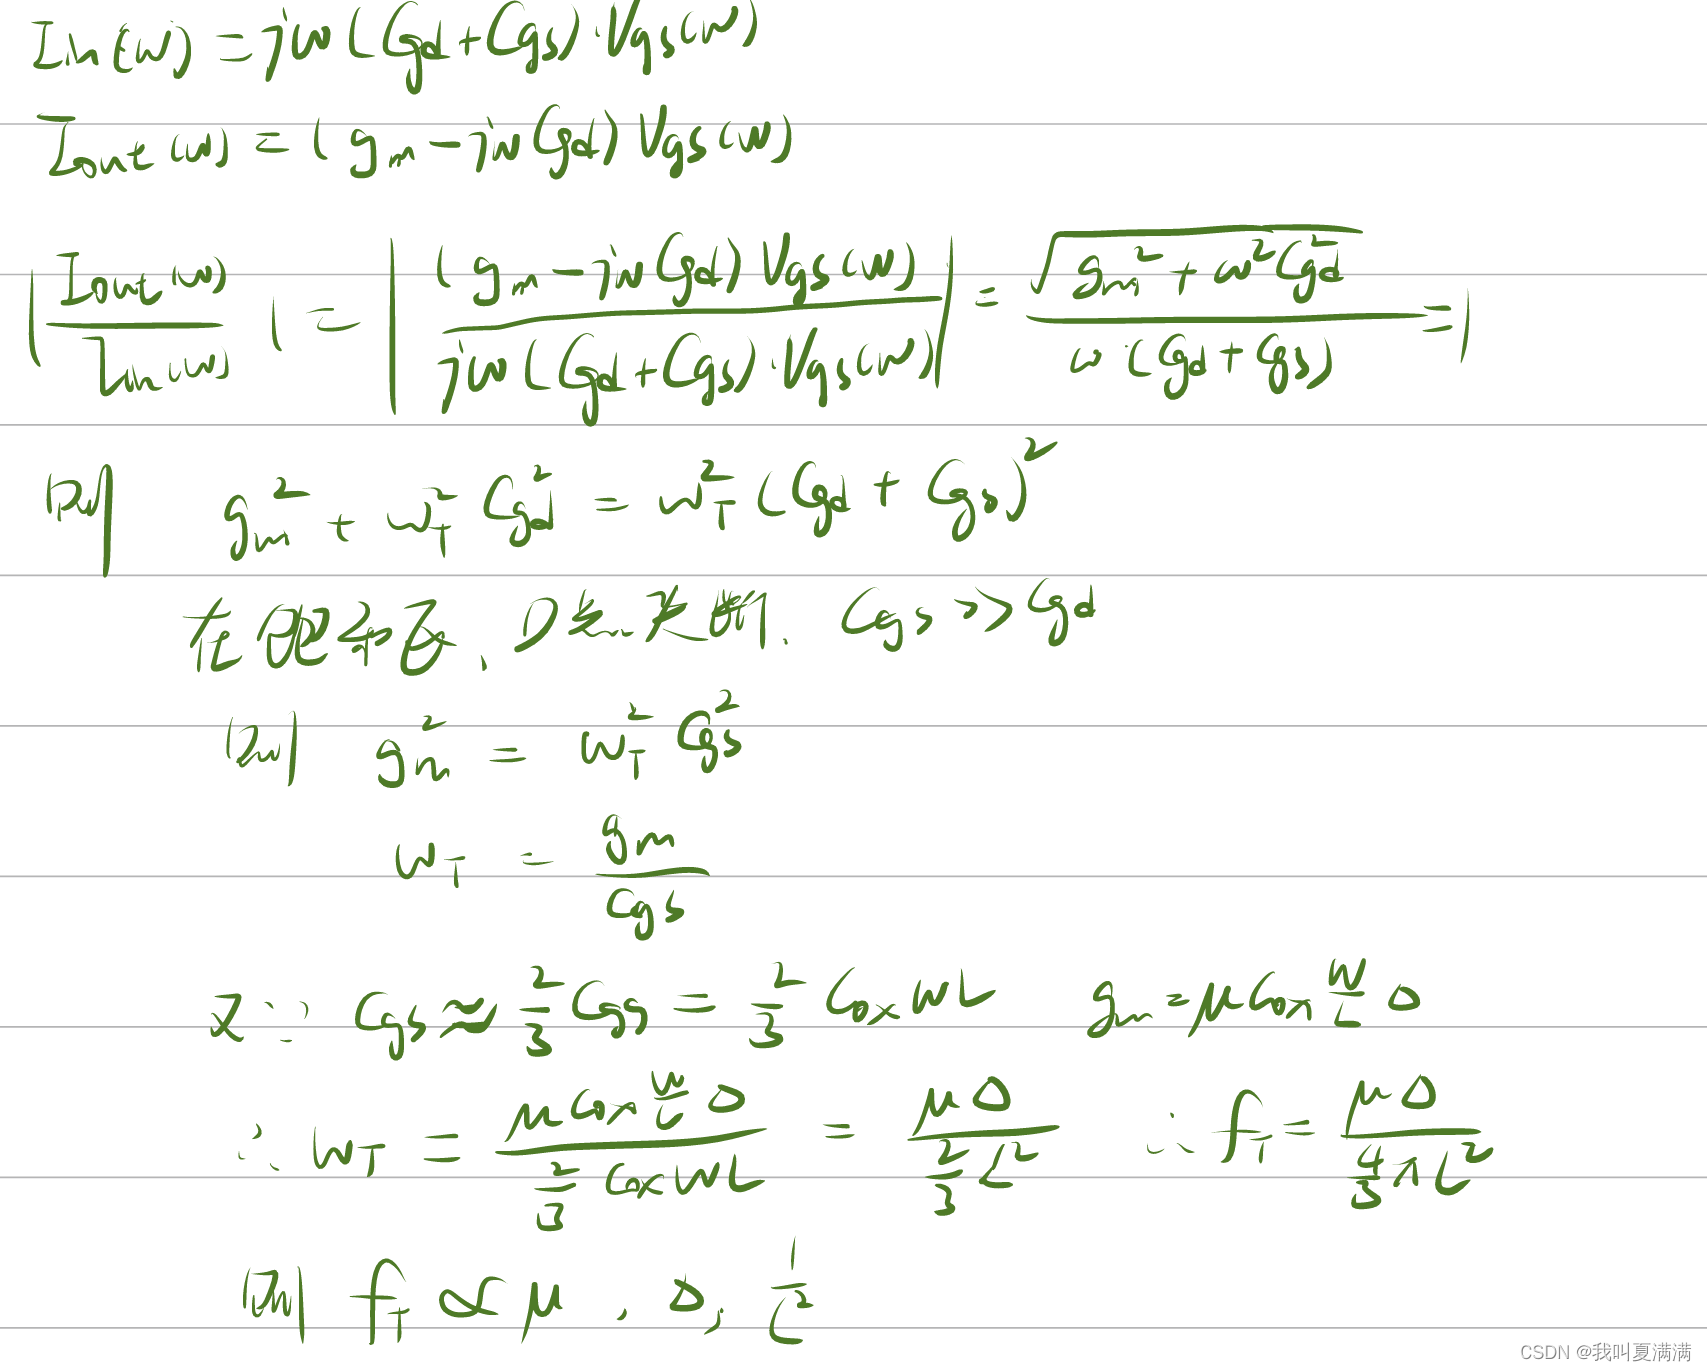 Iin(ω) = jω(Cgd+Cgs)·Vgs(ω)
Iout(ω) = (gm-jωCgd)Vgs(ω)
|Iout(ω)/Iin(ω)| = |(gm-jωCgd)Vgs(ω)/jω(Cgd+Cgs)·Vgs(ω)| = √(gm²+ω²Cgd²)/ω·(Cgd+Cgs) = 1
则 gm² + ωT²Cgd² = ωT²(Cgd + Cgs)²
在饱和区、D点夹断、Cgs >> Cgd
则 gm² = ωT²Cgs²
ωT = gm/Cgs
又∵ Cgs ≈ 2/3 Cgg = 2/3 CoxWL gm=μCox W/L Δ
∴ ωT = μCox W/L Δ / 2/3 CoxWL = μΔ / 2/3 L² ∴ fT = μΔ / 4/3 πL²
则 fT ∝ μ、Δ, 1/L²
CSDN @我叫夏满满